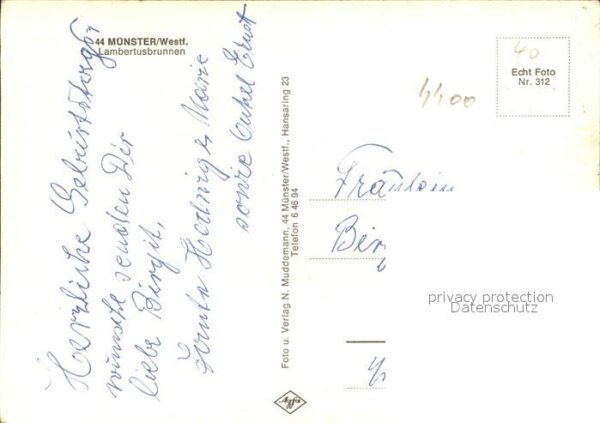 44 MÜNSTER/Westf.
Lambertusbrunnen
Herzliche Geburtstags
wünsche senden Dir
liebe Birgit,
Tante Hedwig, Marie
sowie Onkel Ernst
Foto u. Verlag N. Muddemann, 44 Münster/Westf., Hansaring 23
Telefon 6 46 94
Agfa
40
Echt Foto
Nr. 312
4400
Fräulein
Bir
privacy protection
Datenschutz